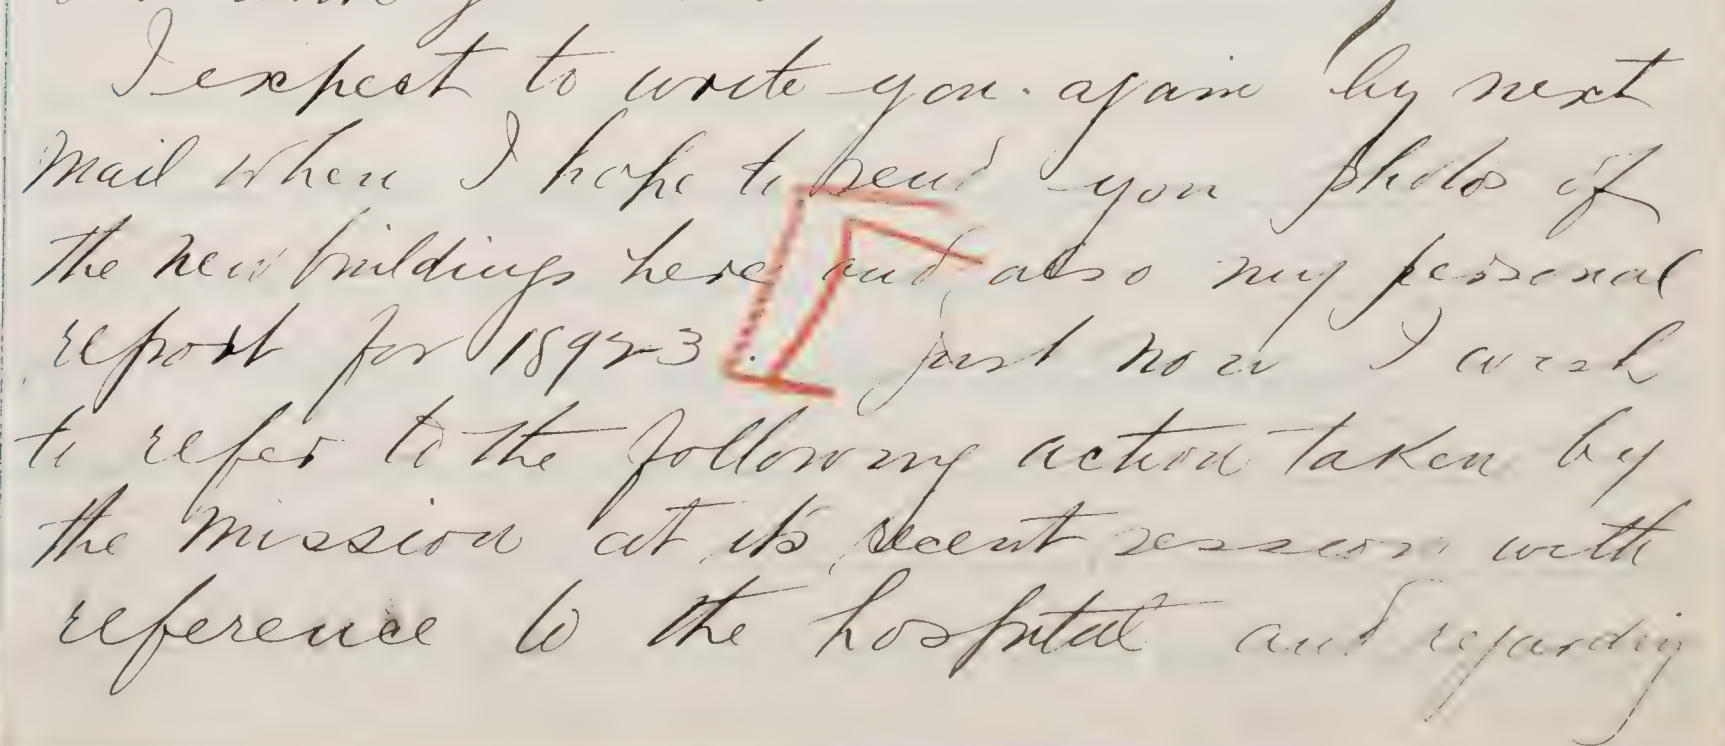 I expect to write you again by next
mail when I hope to send you photos of
the new buildings here and also my personal
report for 1892-3. Just now I wish
to refer to the following action taken by
the mission at its recent session with
reference to the hospital and regarding